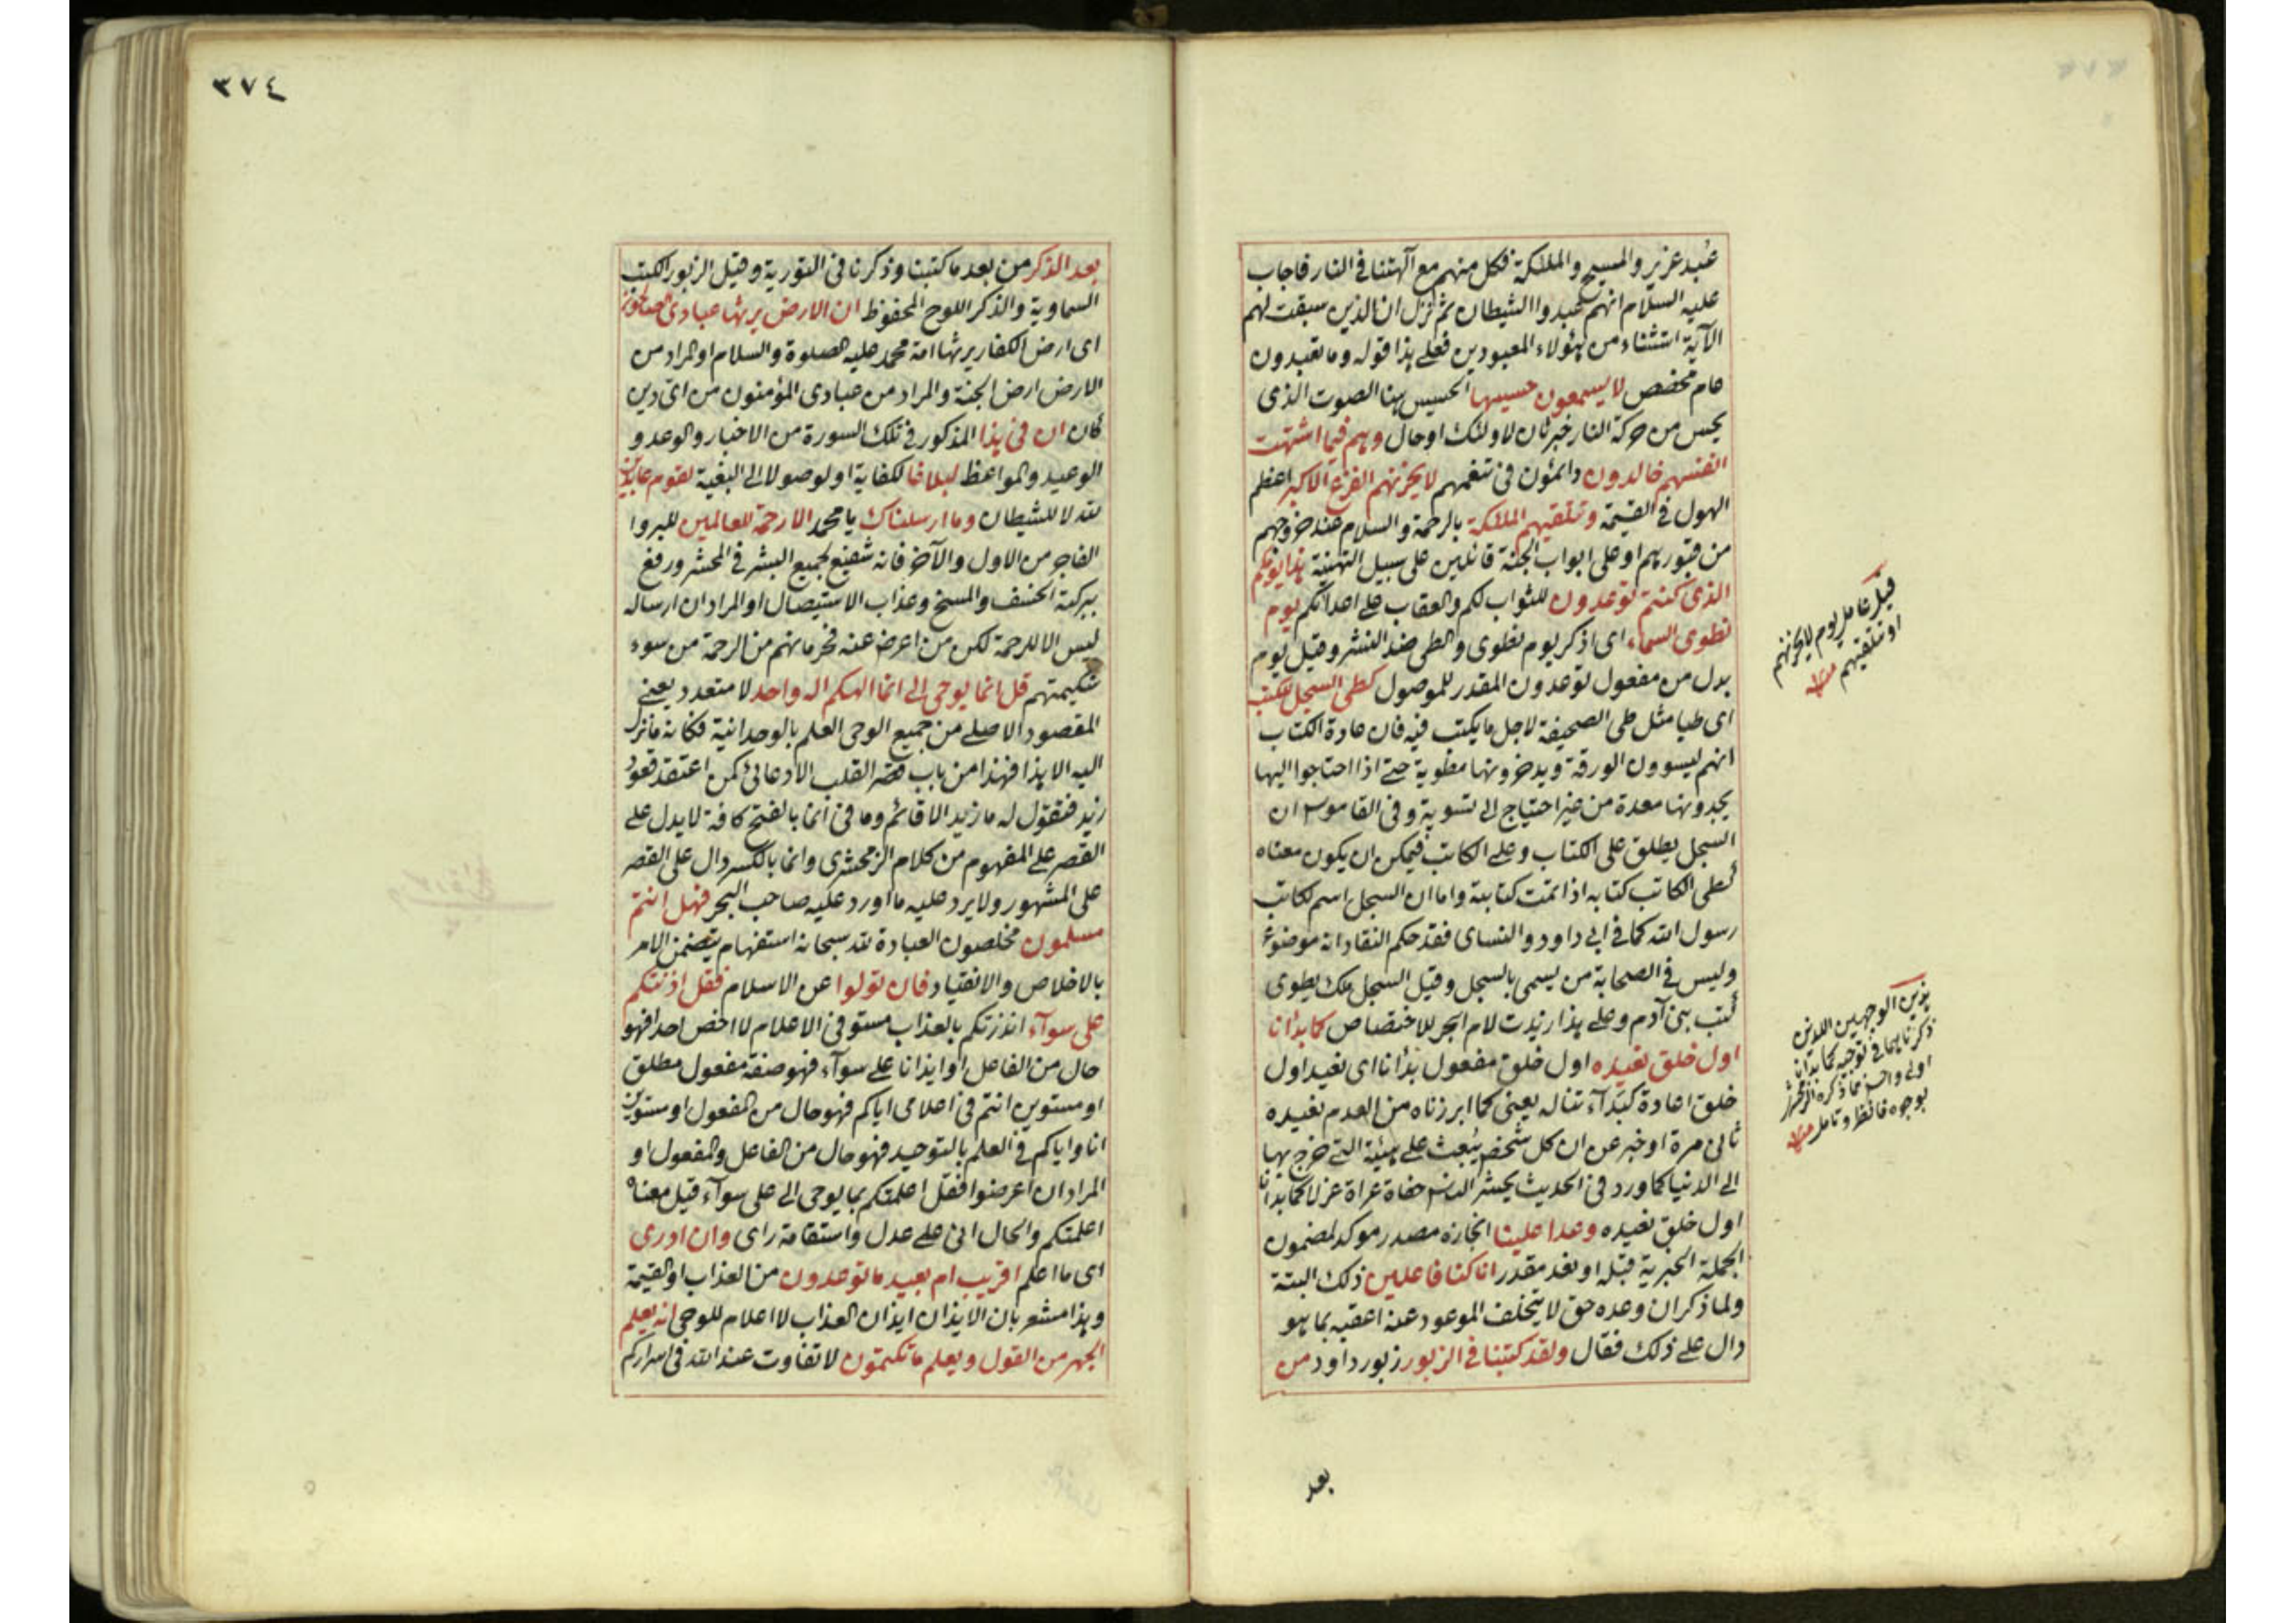 عُبد عزير والمسيح والملئكة فكل منهم مع آلهتنا في النار فاجاب
عليه السلام انهم عبدوا الشيطان ثم نزل ان الذين سبقت لهم
الآية استثناء من هؤلاء المعبودين فعلى هذا قوله وما تعبدون
عام مخصص لا يسمعون حسيسها الحسيس هنا الصوت الذي
يحس من حركة النار خبر ثان لاولئك او حال وهم فيما اشتهت
انفسهم خالدون دائمون في تنعمهم لا يحزنهم الفزع الاكبر اعظم
الهول في القيمة وتتلقيهم الملئكة بالرحمة والسلام عند خروجهم
من قبورهم او على ابواب الجنة قائلين على سبيل التهنية هذا يومكم
الذي كنتم توعدون للثواب لكم والعقاب على اعدائكم يوم
نطوى السماء اى اذكر يوم نطوى والطى ضد النشر وقيل يوم
بدل من مفعول توعدون المقدر للموصول كطى السجل للكتب
اى طيا مثل طى الصحيفة لاجل ما يكتب فيه فان عادة الكتاب
انهم يسوون الورقة ويدخرونها مطوية حتى اذا احتاجوا اليها
يجدونها معدة من غير احتياج الى تسوية وفى القاموس ان
السجل يطلق على الكتاب وعلى الكاتب فيمكن ان يكون معناه
كطى الكاتب كتابه اذا تمت كتابته واما ان السجل اسم لكاتب
رسول الله كما فى ابى داود والنساى فقد حكم النقاد انه موضوع
وليس فى الصحابة من يسمى بالسجل وقيل السجل ملك يطوى
كتب بنى آدم وعلى هذا زيدت لام الجر للاختصاص كما بدأنا
اول خلق نعيده اول خلق مفعول بدأنا اى نعيد اول
خلق اعادة كبدآء تناله يعنى كما ابرزناه من العدم نعيده
ثانى مرة او خبر عن ان كل شخص يُبعث على هيئة التى خرج بها
الى الدنيا كما ورد فى الحديث يحشر الناس حفاة عراة غرلا كما بدأنا
اول خلق نعيده وعدا علينا انجازه مصدر موكد لمضمون
الجملة الخبرية قبله او نعد مقدر انا كنا فاعلين ذلك البتة
ولما ذكر ان وعده حق لا يتخلف الموعود عنه اعقبه بما هو
دال على ذلك فقال ولقد كتبنا فى الزبور زبور داود من
قيل عامل يوم لا يحزنهم
او تتلقيهم منه
هذين الوجهين اللذين
ذكرناهما فى توجيه كما بدأنا
اولى واحسن مما ذكره الزمخشرى
بوجوه فانظر وتامل منه
بعد
٣٧٤
بعد الذكر من بعد ما كتبنا وذكرنا فى التورية وقيل الزبور الكتب
السماوية والذكر اللوح المحفوظ ان الارض يرثها عبادى الصالحون
اى ارض الكفار يرثها امة محمد عليه الصلوة والسلام او المراد من
الارض ارض الجنة والمراد من عبادى المؤمنون من اى دين
كان ان فى هذا المذكور فى تلك السورة من الاخبار والوعد و
الوعيد والمواعظ لبلاغا لكفاية او لوصولا الى البغية لقوم عابدين
لله لا للشيطان وما ارسلناك يا محمد الا رحمة للعالمين للبر وا
الفاجر من الاول والآخر فانه شفيع لجميع البشر فى المحشر ورفع
ببركته الخسف والمسخ وعذاب الاستيصال او المراد ان ارساله
ليس الا للرحمة لكن من اعرض عنه فحرمانهم من الرحمة من سوء
شكيمتهم قل انما يوحى الى انما الهكم اله واحد لا متعدد يعنى
المقصود الاصلى من جميع الوحى العلم بالوحدانية فكانه ما نزل
اليه الا هذا فهذا من باب قصر القلب الادعائى كمن اعتقد قعود
زيد فتقول له ما زيد الا قائم وما فى انما بالفتح كافة لا يدل على
القصر على المفهوم من كلام الزمخشرى وانما بالكسر دال على القصر
على المشهور ولا يرد عليه ما اورد عليه صاحب البحر فهل انتم
مسلمون مخلصون العبادة لله سبحانه استفهام يتضمن الامر
بالاخلاص والانقياد فان تولوا عن الاسلام فقل اذنتكم
على سوآء انذرتكم بالعذاب مستو فى الاعلام لا اخص احدا فهو
حال من الفاعل او ايذانا على سوآء فهو صفة مفعول مطلق
او مستوين انتم فى اعلامى اياكم فهو حال من المفعول او مستوين
انا واياكم فى العلم بالتوحيد فهو حال من الفاعل والمفعول او
المراد ان اعرضوا فقل اعلمتكم بما يوحى الى على سوآء قيل معناه
اعلمتكم والحال انى على عدل واستقامة راى وان ادرى
اى ما اعلم اقريب ام بعيد ما توعدون من العذاب او القيمة
وهذا مشعر بان الايذان ايذان العذاب لا اعلام للوحى انه يعلم
الجهر من القول ويعلم ما تكتمون لا تفاوت عند الله فى اسراركم